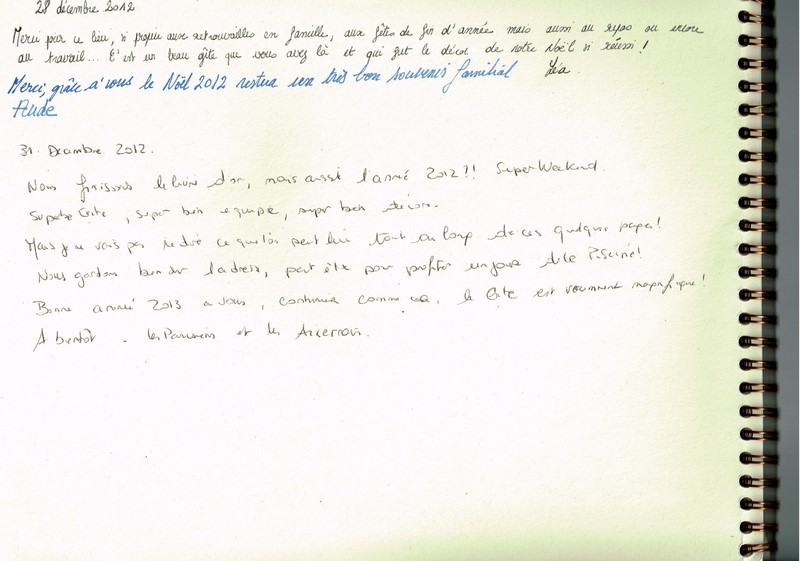 28 décembre 2012
Merci pour ce lieu, si propice aux retrouvailles en famille, aux fêtes de fin d'année mais aussi au repos ou encore
au travail... C'est un beau gîte que vous avez là et qui fut le décor de notre Noël si réussi !
Léa.
Merci, grâce à vous le Noël 2012 restera un très bon souvenir familial
Aude
31 Décembre 2012.
Nous finissons le livre d'or, mais aussi l'année 2012 ?! Super Weekend.
Superbe Gite, super bien equipé, super bien décoré.
Mais je ne vais pas redire ce que l'on peut lire tout au long de ces quelques pages !
Nous gardons bien sur l'adresse, peut être pour profiter un jour de la Piscine !
Bonne année 2013 a vous, continuez comme ca, le Gite est vraiment magnifique !
A bientôt - les et les